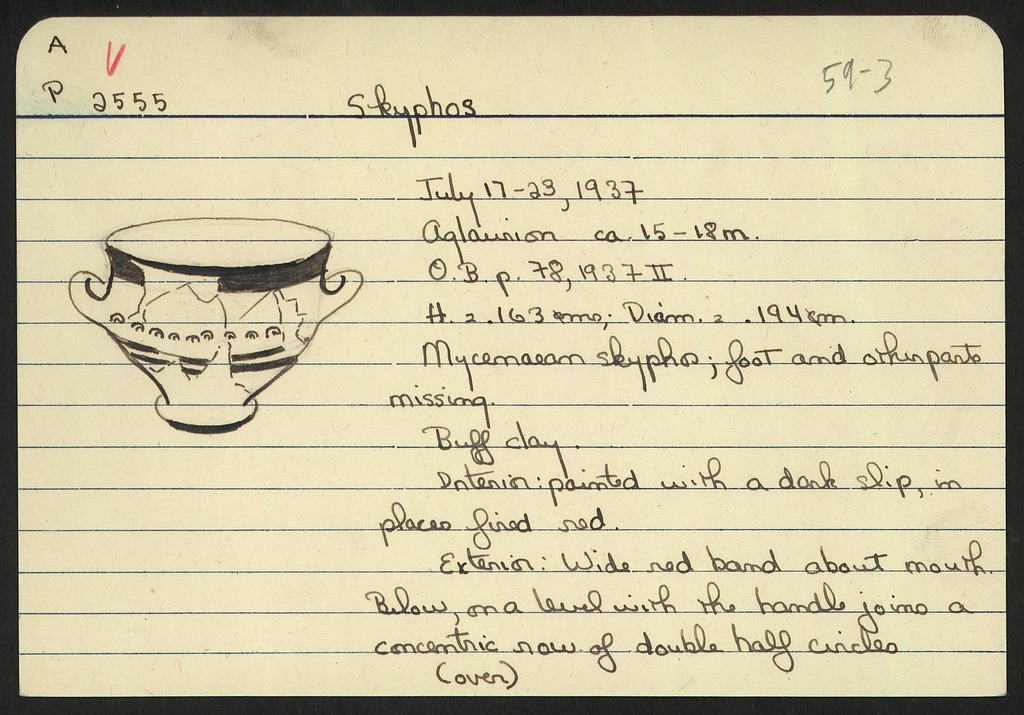 A V
59-3
P 2555 Skyphos
July 17-23, 1937
Aglaurion ca. 15-18m.
O.B. p. 78, 1937 II.
H. = .163 ; Diam. = .194 m.
Mycenaean skyphos; foot and other parts
missing.
Buff clay.
Interior: painted with a dark slip, in
places fired red.
Exterior: Wide red band about mouth.
Below, on a level with the handle joins a
concentric row of double half circles
(over)